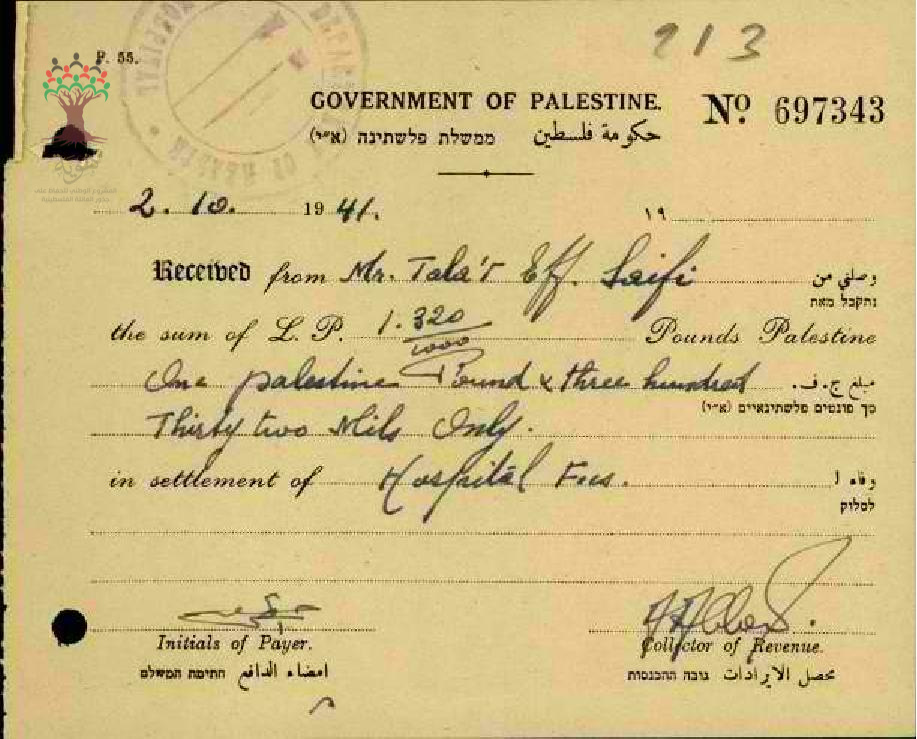 P. 55.
213
GOVERNMENT OF PALESTINE.
Nº 697343
ממשלת פלשתינה (א״י) حكومة فلسطين
2. 10. 1941. ١٩
Received from Mr. Tala't Eff. Saifi وصلني من
נתקבל מאת
the sum of L. P. 1.320/1000 Pounds Palestine
One palestine Pound & three hundred مبلغ ج. ف.
סך פונטים פלשתינאיים (א״י)
Thirty two Mils Only.
in settlement of Hospital Fees. وفاء ا
לסלוק
Initials of Payer. Collector of Revenue.
חתימת המשלם امضاء الدافع גובה ההכנסות محصل الايرادات